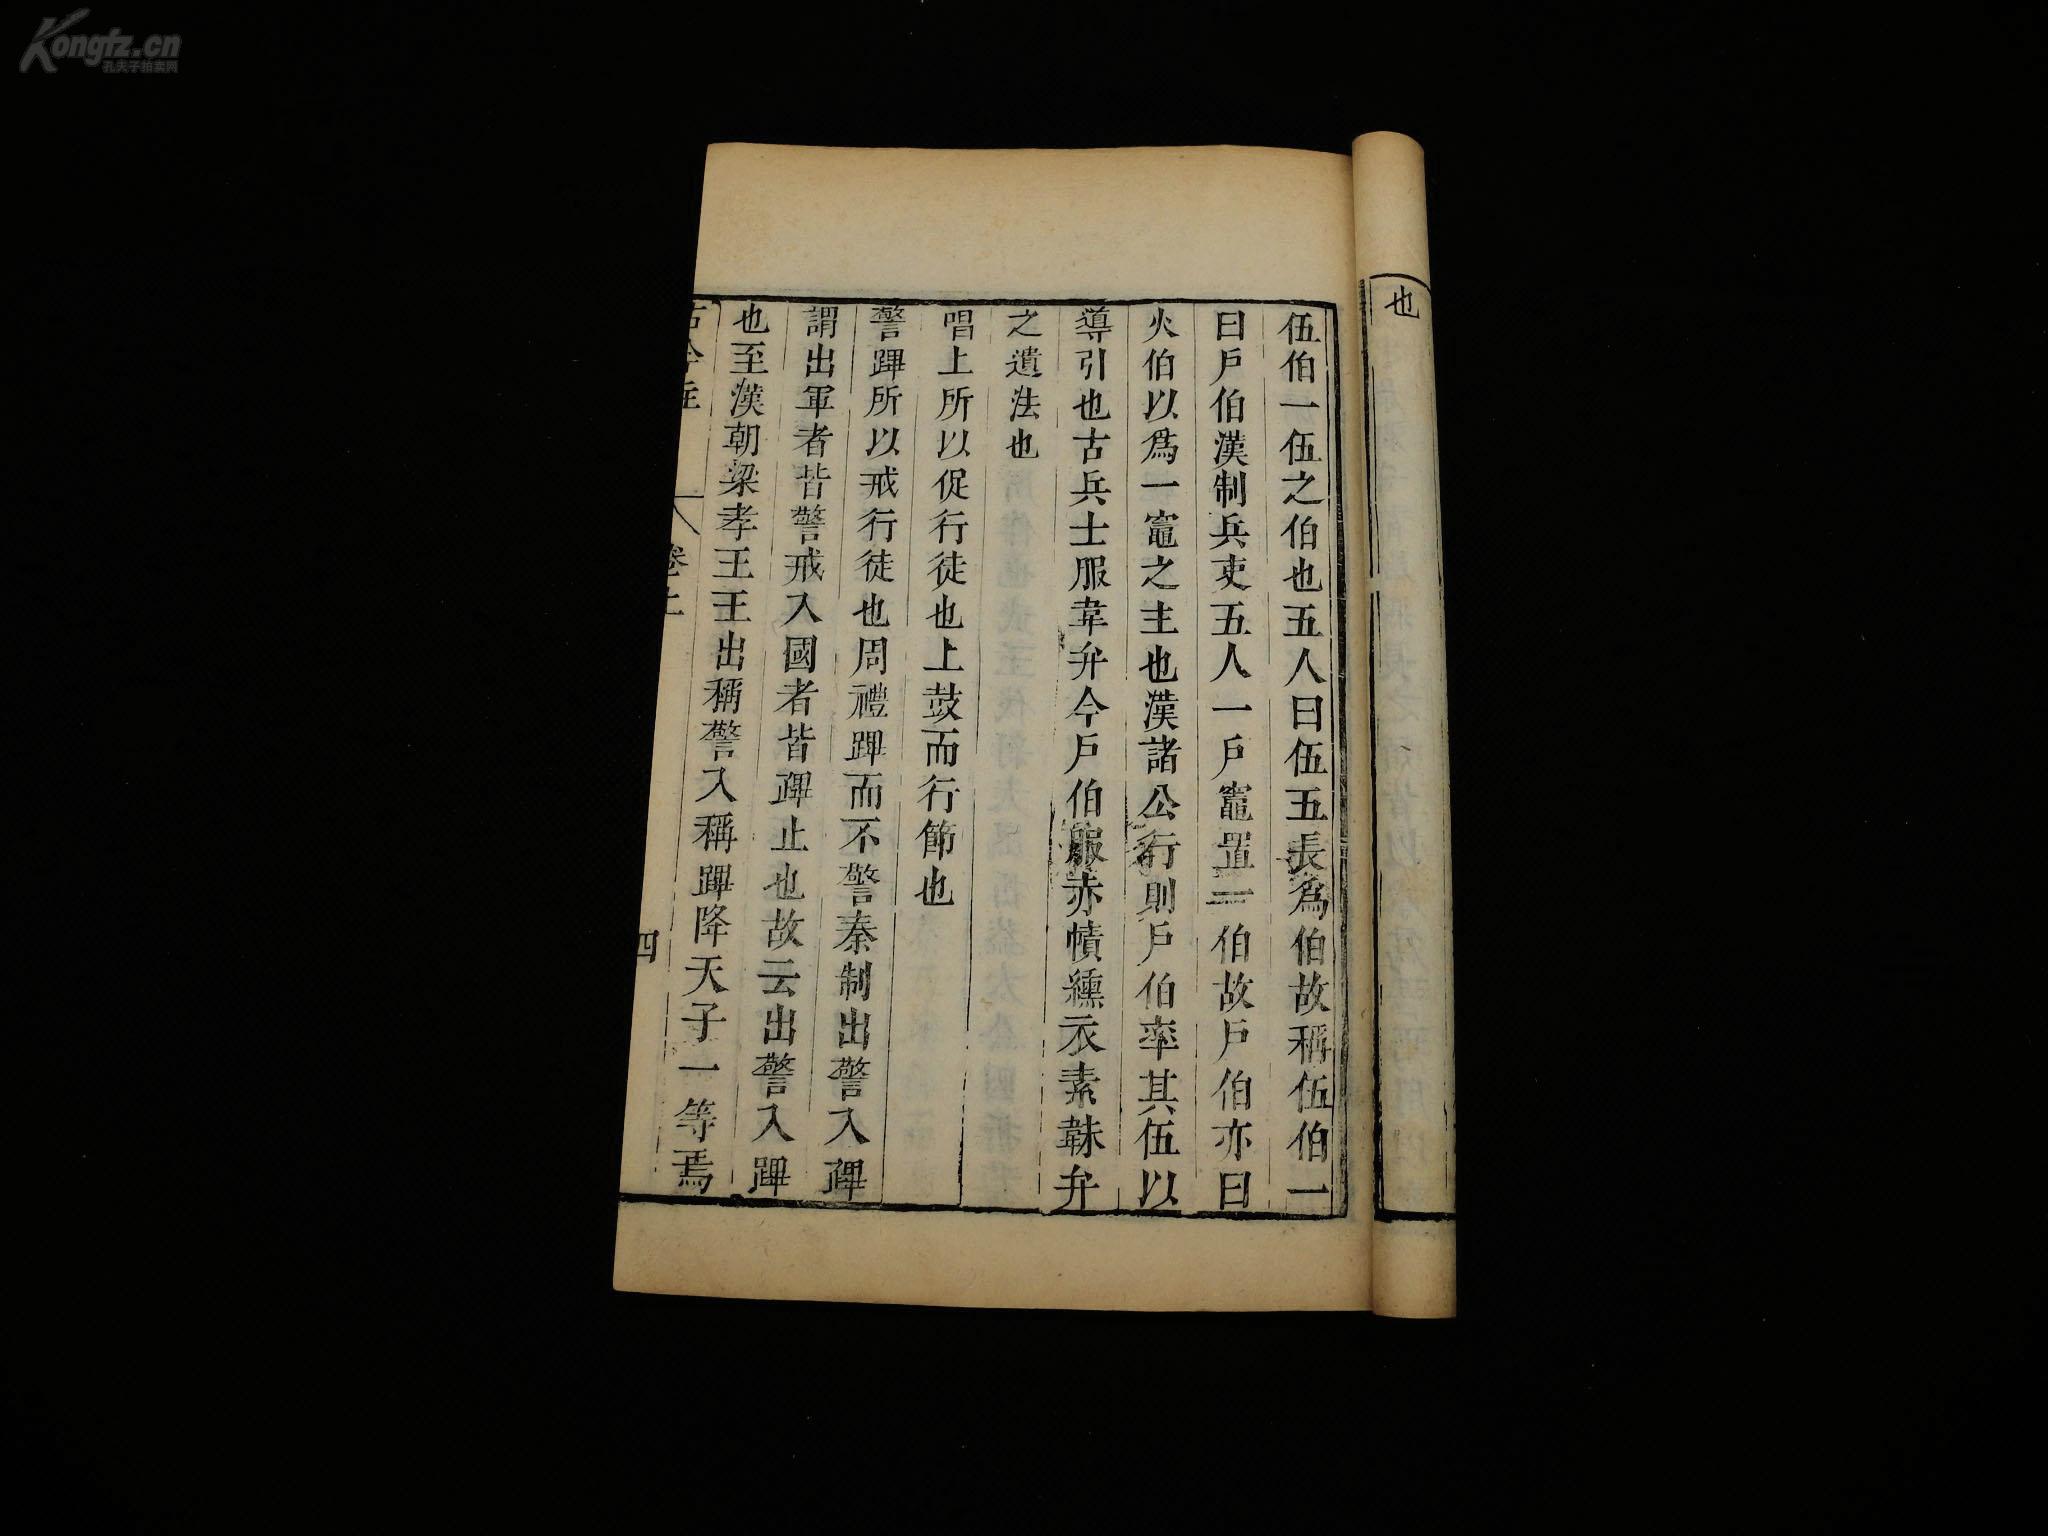 Kongfz.cn
孔夫子拍卖网
也
伍伯一伍之伯也五人曰伍五長為伯故稱伍伯一
曰戶伯漢制兵吏五人一戶竈置一伯故戶伯亦曰
火伯以為一竈之主也漢諸公行則戶伯率其伍以
導引也古兵士服韋弁今戶伯服赤幘纁衣素韎弁
之遺法也
唱上所以促行徒也上鼓而行節也
警蹕所以戒行徒也周禮蹕而不警秦制出警入蹕
謂出軍者皆警戒入國者皆蹕止也故云出警入蹕
也至漢朝梁孝王王出稱警入稱蹕降天子一等焉
古今注 卷上 四